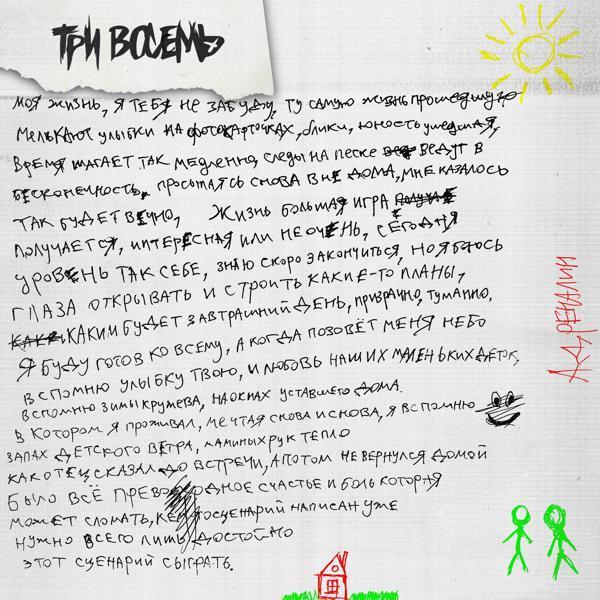 ТРИ ВОСЕМЬ
МОЯ ЖИЗНЬ, Я ТЕБЯ НЕ ЗАБУДУ, ТУ САМУЮ ЖИЗНЬ ПРОШЕДШУЮ
МЕЛЬКАЮТ УЛЫБКИ НА ФОТОКАРТОЧКАХ, БЛИКИ, ЮНОСТЬ УШЕДШАЯ,
ВРЕМЯ ШАГАЕТ ТАК МЕДЛЕННО, СЛЕДЫ НА ПЕСКЕ ВЕДУТ В
БЕСКОНЕЧНОСТЬ, ПРОСЫПАЯСЬ СНОВА ВНЕ ДОМА, МНЕ КАЗАЛОСЬ
ТАК БУДЕТ ВЕЧНО, ЖИЗНЬ БОЛЬШАЯ ИГРА
ПОЛУЧАЕТСЯ, ИНТЕРЕСНАЯ ИЛИ НЕ ОЧЕНЬ, СЕГОДНЯ
УРОВЕНЬ ТАК СЕБЕ, ЗНАЮ СКОРО ЗАКОНЧИТЬСЯ, НО Я БОЮСЬ
ГЛАЗА ОТКРЫВАТЬ И СТРОИТЬ КАКИЕ-ТО ПЛАНЫ,
КАКИМ БУДЕТ ЗАВТРАШНИЙ ДЕНЬ, ПРИЗРАЧНО, ТУМАННО,
Я БУДУ ГОТОВ КО ВСЕМУ, А КОГДА ПОЗОВЁТ МЕНЯ НЕБО
ВСПОМНЮ УЛЫБКУ ТВОЮ, И ЛЮБОВЬ НАШИХ МАЛЕНЬКИХ ДЕТОК,
ВСПОМНЮ ЗИМЫ КРУЖЕВА, НА ОКНАХ УСТАВШЕГО ДОМА.
В КОТОРОМ Я ПРОЖИВАЛ, МЕЧТАЯ СНОВА И СНОВА, Я ВСПОМНЮ
ЗАПАХ ДЕТСКОГО ВЕТРА, МАМИНЫХ РУК ТЕПЛО
КАК ОТЕЦ СКАЗАЛ ДО ВСТРЕЧИ, А ПОТОМ НЕ ВЕРНУЛСЯ ДОМОЙ
БЫЛО ВСЁ ПРЕВОСХОДНОЕ СЧАСТЬЕ И БОЛЬ КОТОРАЯ
МОЖЕТ СЛОМАТЬ, СЦЕНАРИЙ НАПИСАН УЖЕ
НУЖНО ВСЕГО ЛИШЬ, ДОСТОЙНО
ЭТОТ СЦЕНАРИЙ СЫГРАТЬ.
АДРЕНАЛИН